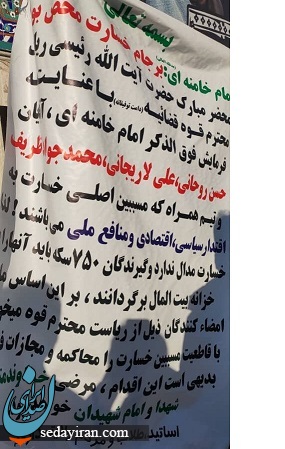 بسمه تعالی
امام خامنه ای: برجام خسارت محض بو
محضر مبارک حضرت آیت الله رئیسی ریا
محترم قوه قضائیه (دامت توفیقاته) با عنایت به
فرمایش فوق الذکر امام خامنه ای، آقایان
حسن روحانی، علی لاریجانی، محمدجواد ظریف
و تیم همراه که مسببین اصلی خسارت به
اقتدار سیاسی، اقتصادی و منافع ملی می باشند! لذا
خسارت مدال ندارد و گیرندگان ۷۵۰ سکه باید آنها را
خزانه بیت المال برگردانند، بر این اساس ما
امضاء کنندگان ذیل از ریاست محترم قوه میخو
با قاطعیت مسببین خسارت را محاکمه و مجازات
بدیهی است این اقدام، مرضی
شهدا و امام شهیدان
اساتید
صدای ایران
sedayiran.com